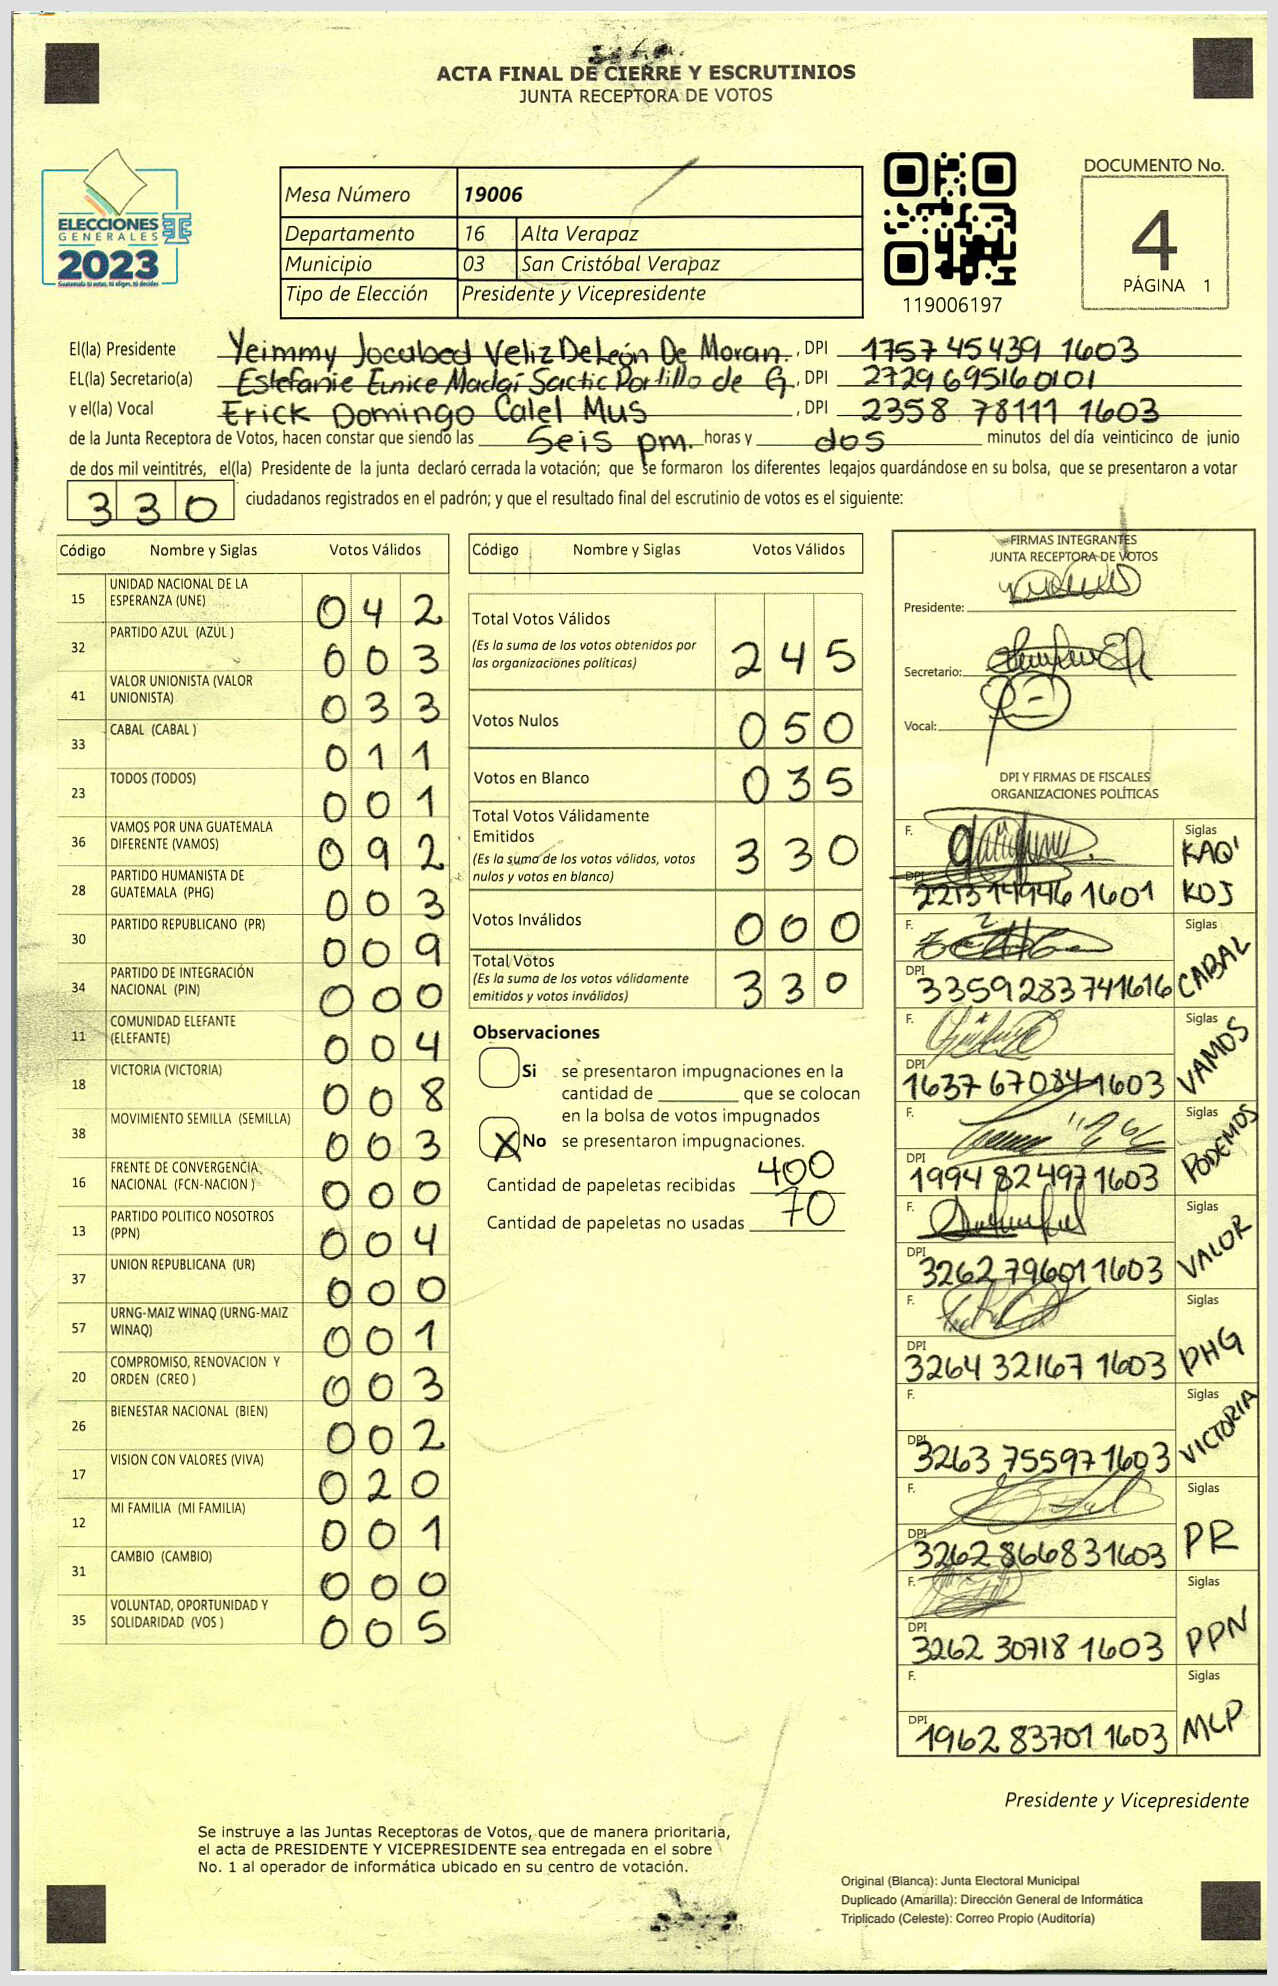 ACTA FINAL DE CIERRE Y ESCRUTINIOS
JUNTA RECEPTORA DE VOTOS
ELECCIONES
GENERALES
2023
Guatemala tú votas, tú eliges, tú decides
Mesa Número 19006
Departamento 16 Alta Verapaz
Municipio 03 San Cristóbal Verapaz
Tipo de Elección Presidente y Vicepresidente
119006197
DOCUMENTO No.
4
PÁGINA 1
El(la) Presidente Yeimmy Jocabed Veliz De León De Moran. , DPI 1757 45439 1603
EL(la) Secretario(a) Estefanie Eunice Madaí Sactic Portillo de G. , DPI 2729695160101
y el(la) Vocal Erick Domingo Calel Mus , DPI 2358 78111 1603
de la Junta Receptora de Votos, hacen constar que siendo las Seis pm. horas y dos minutos del día veinticinco de junio
de dos mil veintitrés, el(la) Presidente de la junta declaró cerrada la votación; que se formaron los diferentes legajos guardándose en su bolsa, que se presentaron a votar
330 ciudadanos registrados en el padrón; y que el resultado final del escrutinio de votos es el siguiente:
Código Nombre y Siglas Votos Válidos
15 UNIDAD NACIONAL DE LA
ESPERANZA (UNE) 042
32 PARTIDO AZUL (AZUL ) 003
41 VALOR UNIONISTA (VALOR
UNIONISTA) 033
33 CABAL (CABAL ) 011
23 TODOS (TODOS) 001
36 VAMOS POR UNA GUATEMALA
DIFERENTE (VAMOS) 092
28 PARTIDO HUMANISTA DE
GUATEMALA (PHG) 003
30 PARTIDO REPUBLICANO (PR) 009
34 PARTIDO DE INTEGRACIÓN
NACIONAL (PIN) 000
11 COMUNIDAD ELEFANTE
(ELEFANTE) 004
18 VICTORIA (VICTORIA) 008
38 MOVIMIENTO SEMILLA (SEMILLA) 003
16 FRENTE DE CONVERGENCIA
NACIONAL (FCN-NACION ) 000
13 PARTIDO POLITICO NOSOTROS
(PPN) 004
37 UNION REPUBLICANA (UR) 000
57 URNG-MAIZ WINAQ (URNG-MAIZ
WINAQ) 001
20 COMPROMISO, RENOVACION Y
ORDEN (CREO ) 003
26 BIENESTAR NACIONAL (BIEN) 002
17 VISION CON VALORES (VIVA) 020
12 MI FAMILIA (MI FAMILIA) 001
31 CAMBIO (CAMBIO) 000
35 VOLUNTAD, OPORTUNIDAD Y
SOLIDARIDAD (VOS ) 005
Código Nombre y Siglas Votos Válidos
Total Votos Válidos
(Es la suma de los votos obtenidos por
las organizaciones políticas) 245
Votos Nulos 050
Votos en Blanco 035
Total Votos Válidamente
Emitidos
(Es la suma de los votos válidos, votos
nulos y votos en blanco) 330
Votos Inválidos 000
Total Votos
(Es la suma de los votos válidamente
emitidos y votos inválidos) 330
Observaciones
Si se presentaron impugnaciones en la
cantidad de ________ que se colocan
en la bolsa de votos impugnados
X No se presentaron impugnaciones.
Cantidad de papeletas recibidas 400
Cantidad de papeletas no usadas 70
FIRMAS INTEGRANTES
JUNTA RECEPTORA DE VOTOS
Presidente:
Secretario:
Vocal:
DPI Y FIRMAS DE FISCALES
ORGANIZACIONES POLÍTICAS
F. Siglas KAQ'
DPI 2213 14946 1601 KOJ
F. Siglas CABAL
DPI 3359283741616
F. Siglas VAMOS
DPI 1637 67084 1603
F. Siglas PODEMOS
DPI 1994 82497 1603
F. Siglas VALOR
DPI 3262 79601 1603
F. Siglas PHG
DPI 3264 32167 1603
F. Siglas VICTORIA
DPI 3263 75597 1603
F. Siglas PR
DPI 3262 86683 1603
F. Siglas PPN
DPI 3262 30718 1603
F. Siglas MLP
DPI 1962 83701 1603
Presidente y Vicepresidente
Se instruye a las Juntas Receptoras de Votos, que de manera prioritaria,
el acta de PRESIDENTE Y VICEPRESIDENTE sea entregada en el sobre
No. 1 al operador de informática ubicado en su centro de votación.
Original (Blanca): Junta Electoral Municipal
Duplicado (Amarilla): Dirección General de Informática
Triplicado (Celeste): Correo Propio (Auditoría)